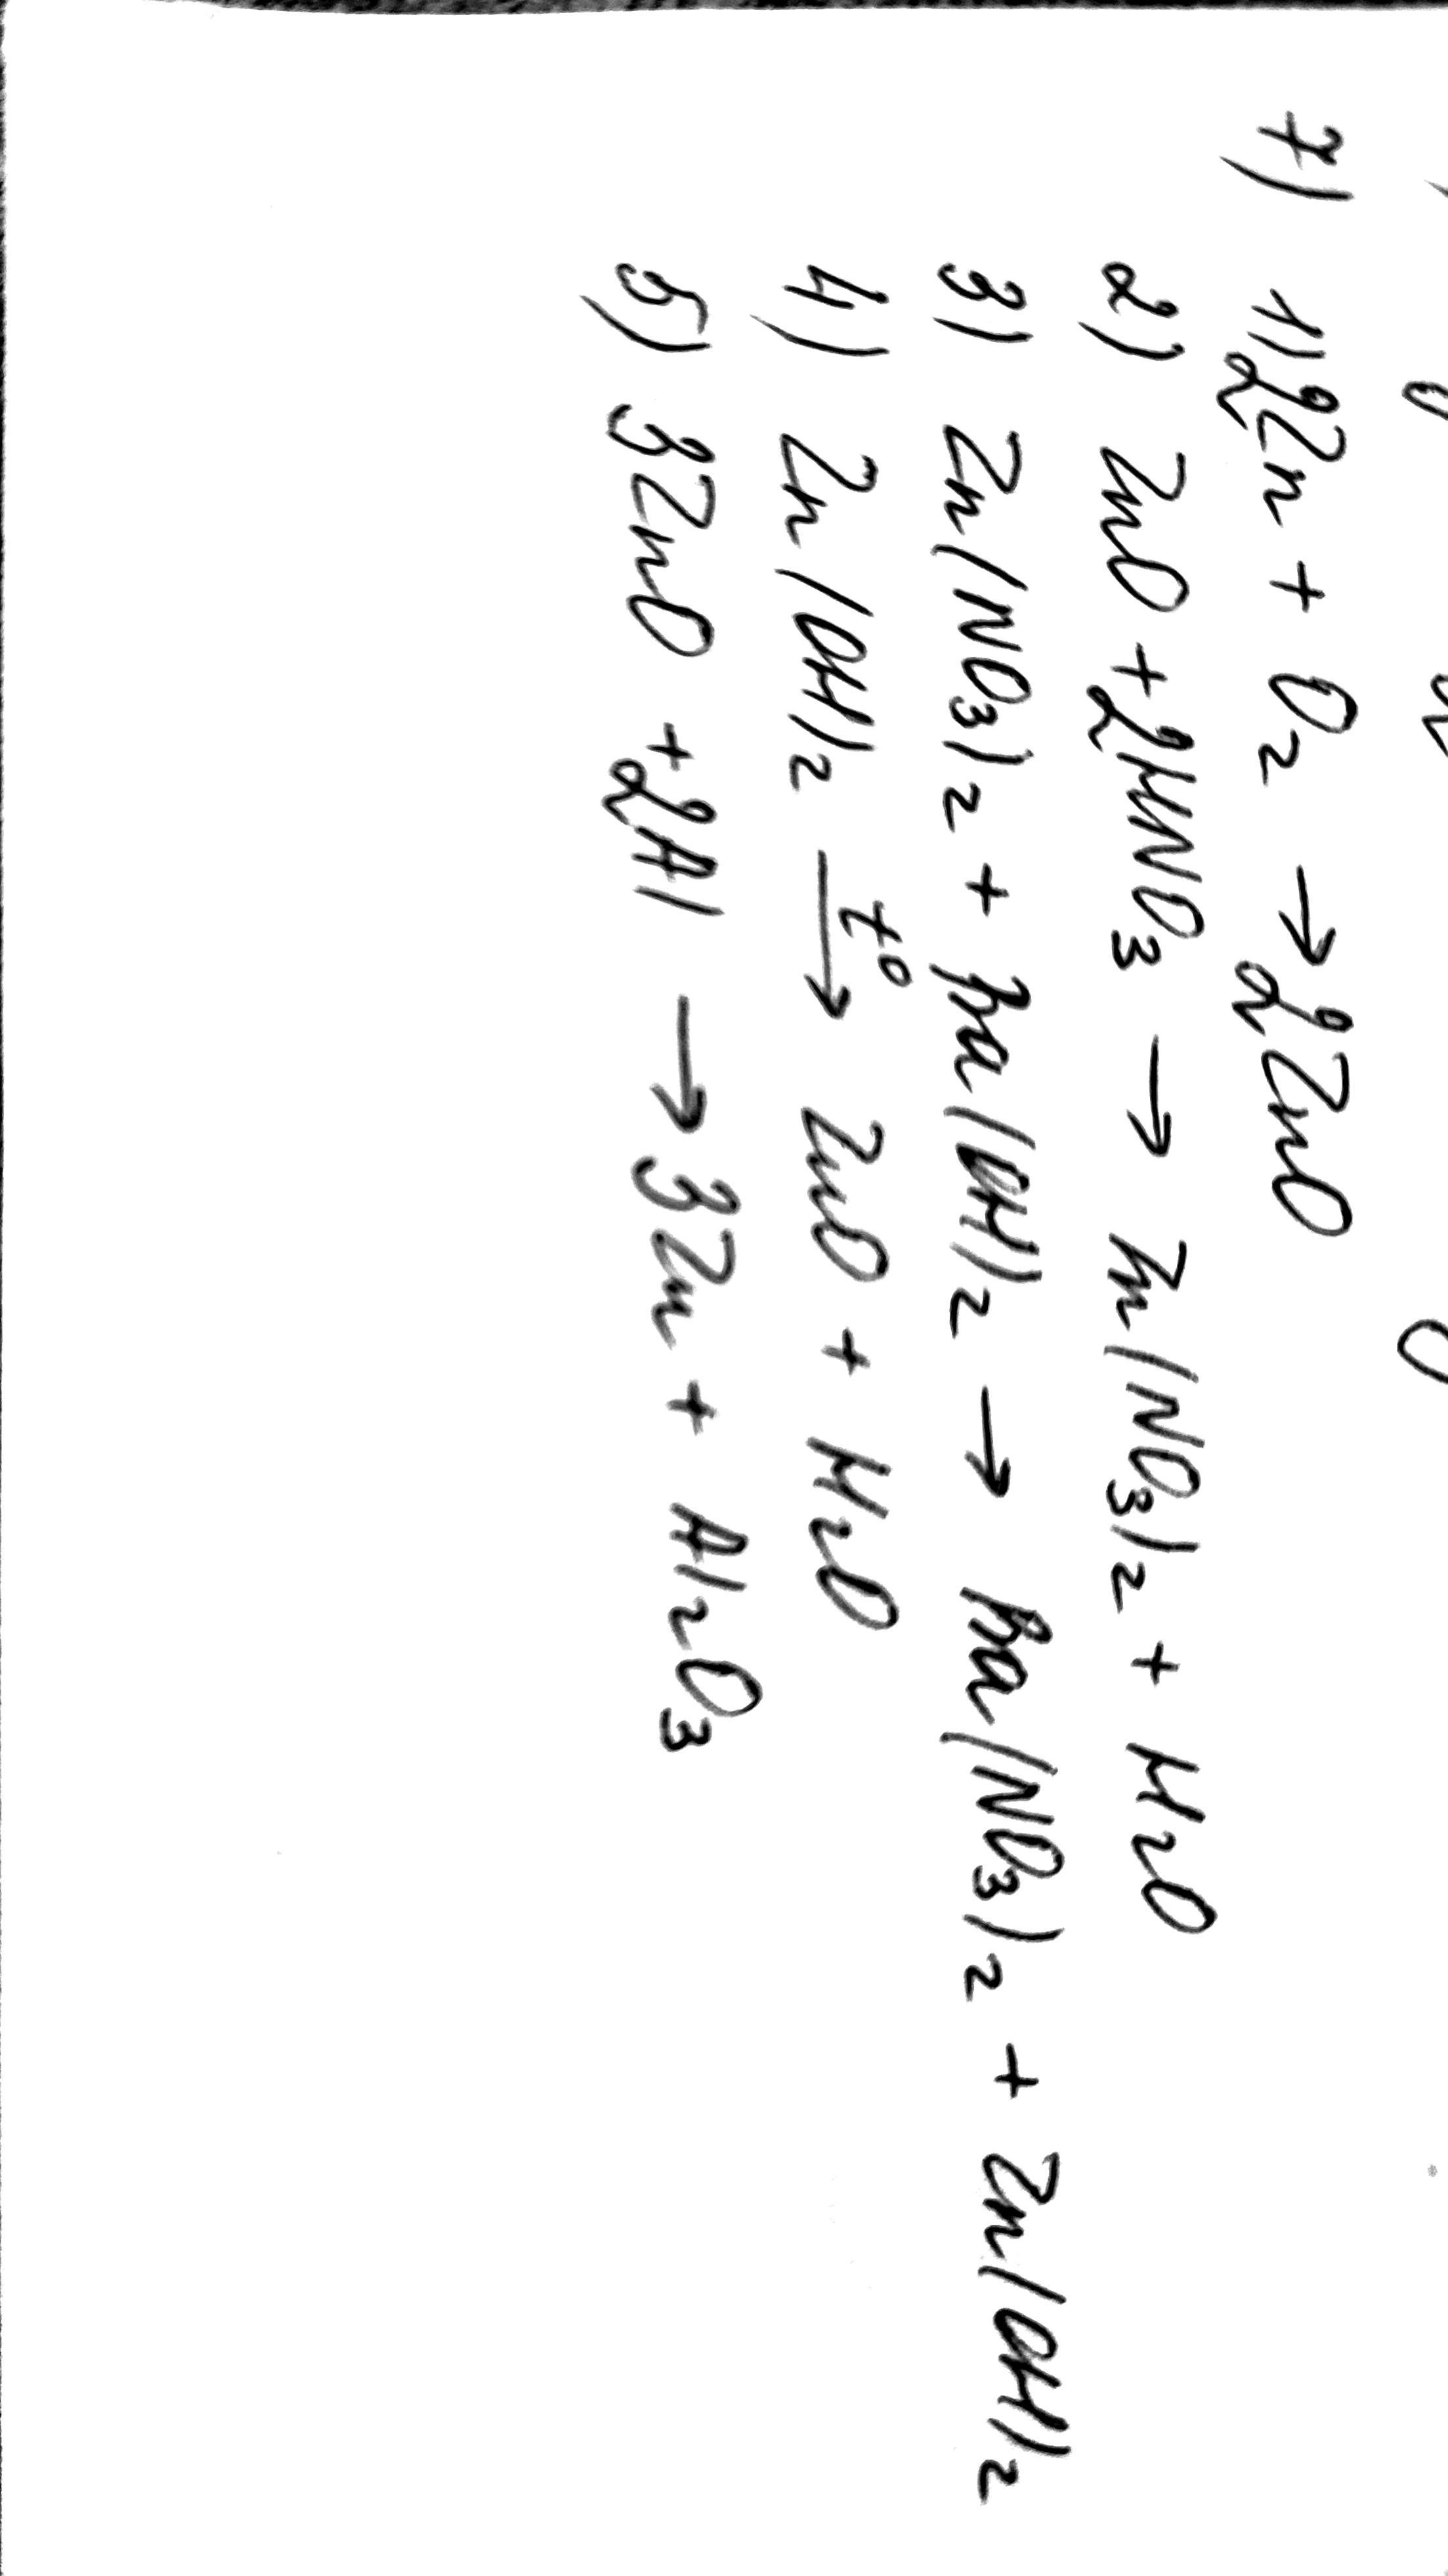 7) 1) 2Zn + O₂ → 2ZnO
2) ZnO + 2HNO₃ → Zn(NO₃)₂ + H₂O
3) Zn(NO₃)₂ + Ba(OH)₂ → Ba(NO₃)₂ + Zn(OH)₂
4) Zn(OH)₂ t° → ZnO + H₂O
5) 3ZnO + 2Al → 3Zn + Al₂O₃